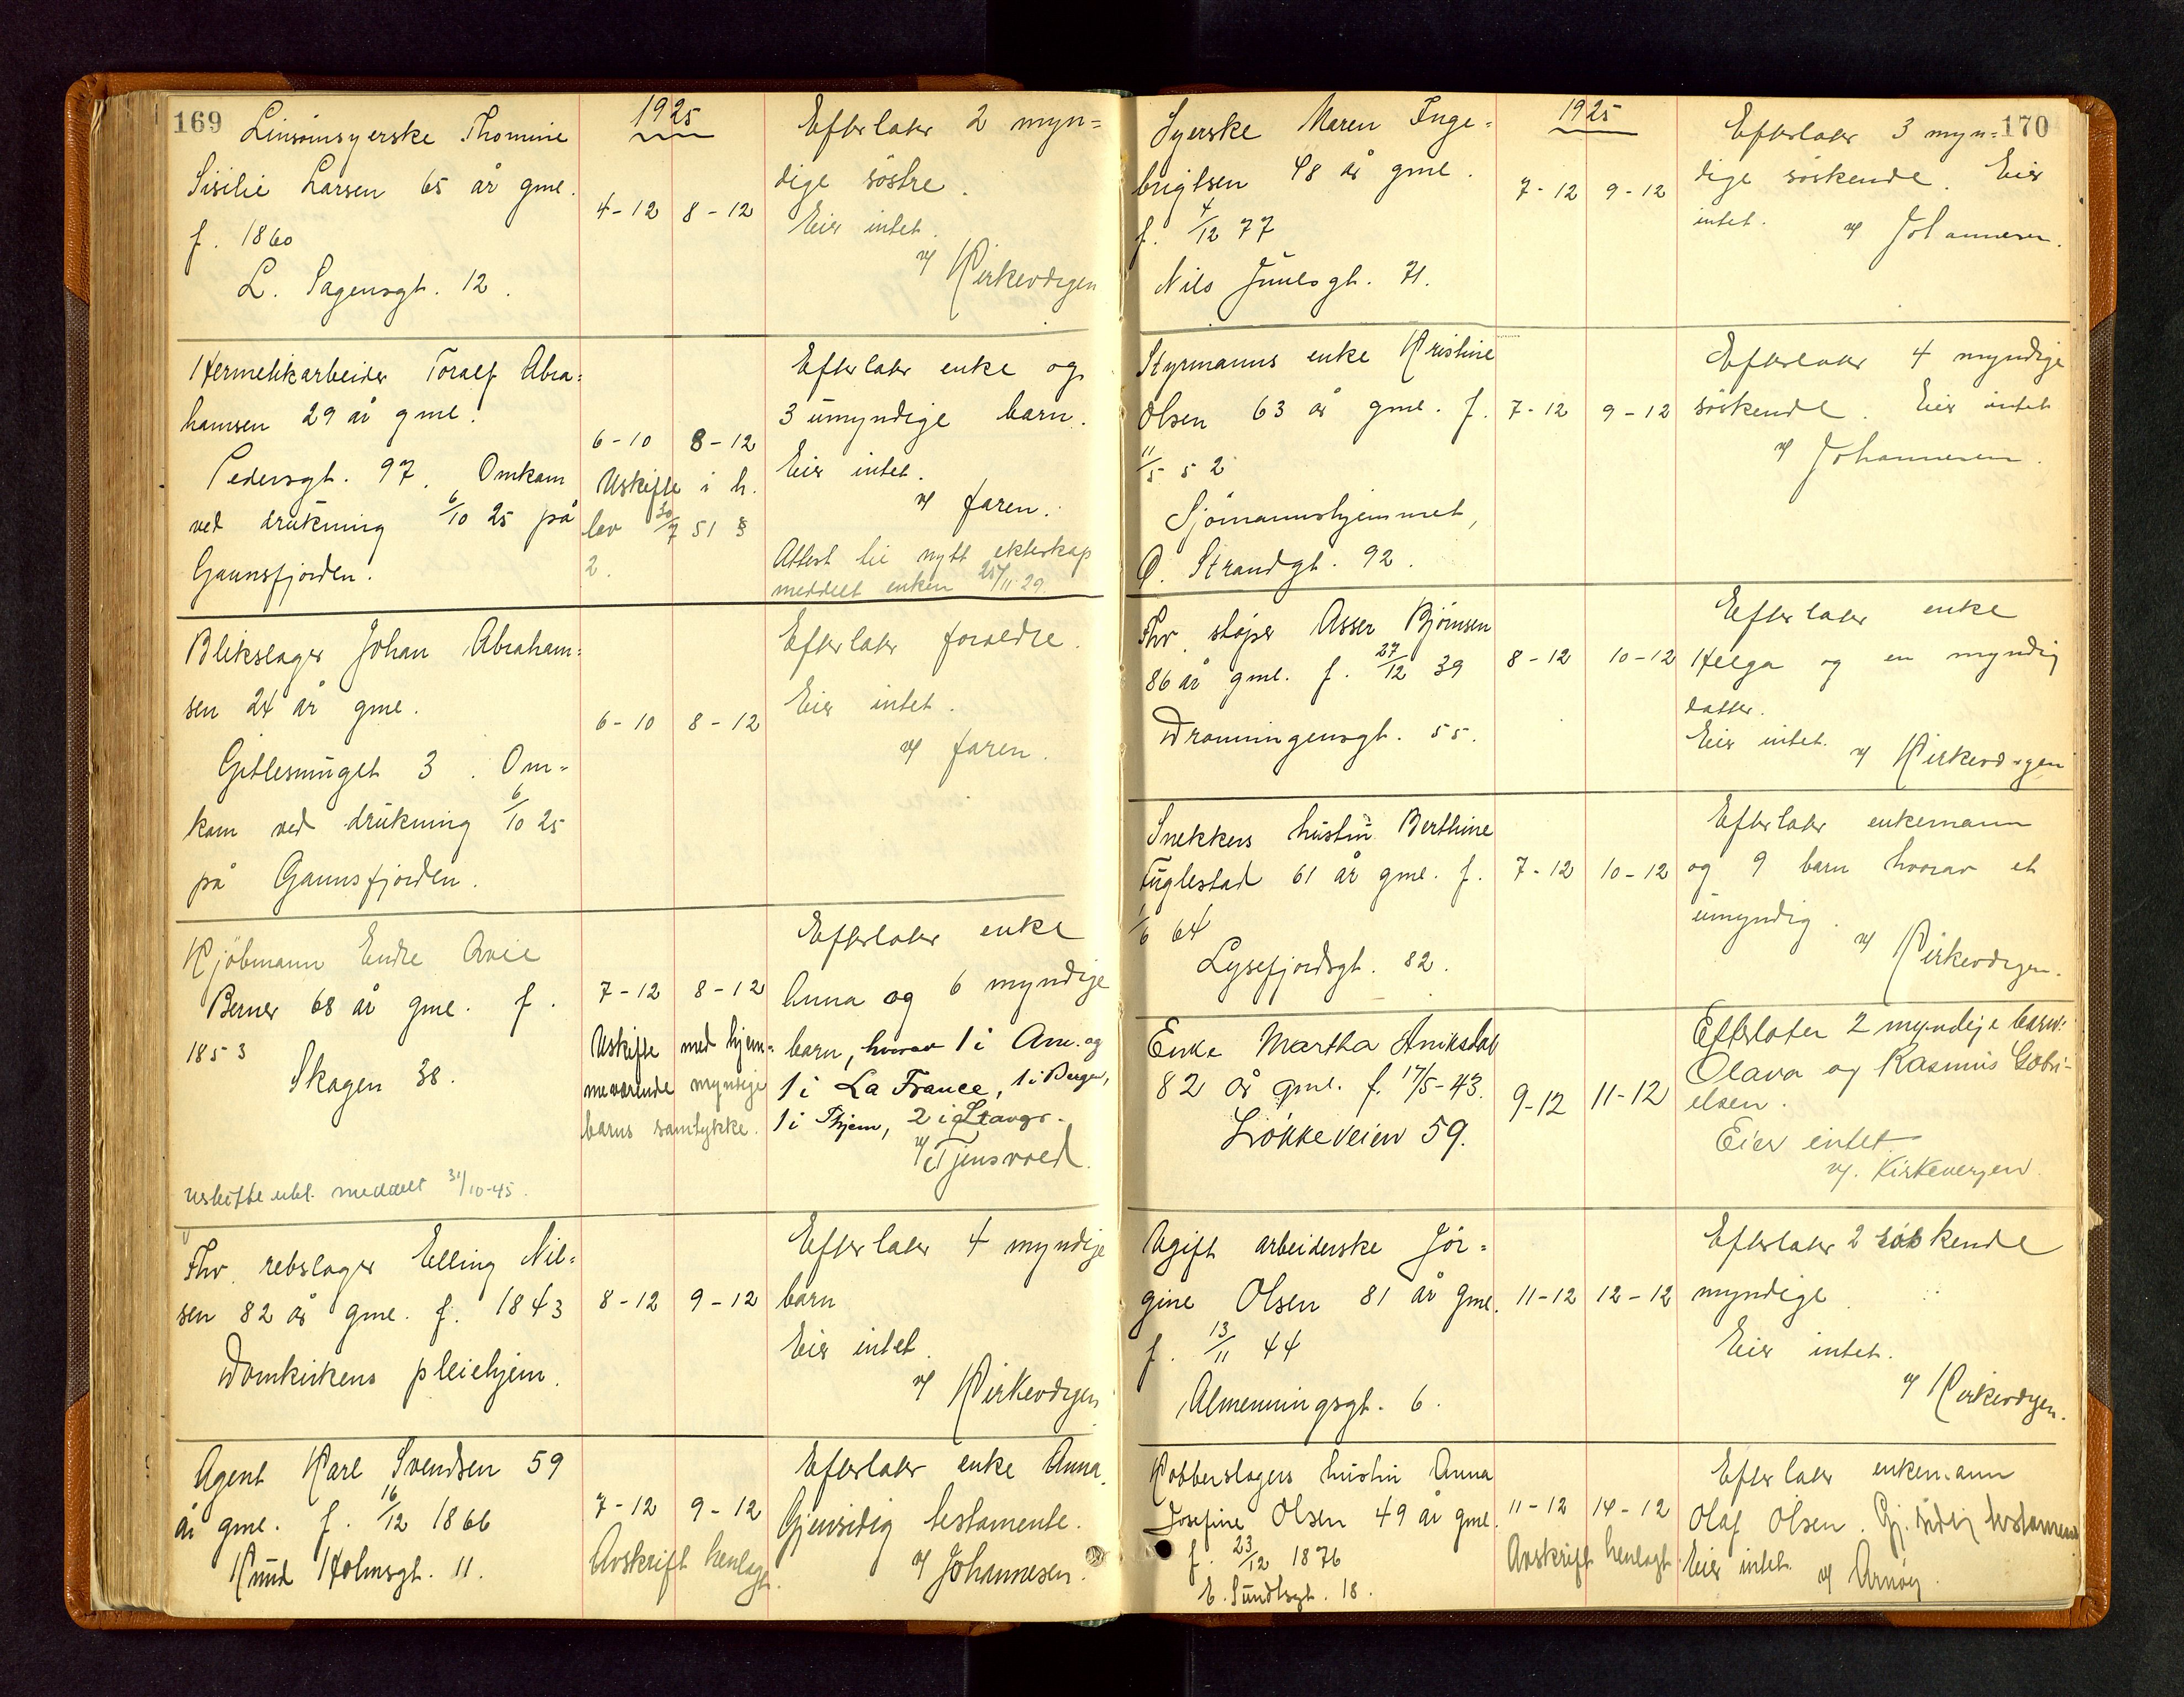 169
1925
Linsömsyerske Thomine
Sisilie Larsen 65 år gml.
f. 1860
L. Sagensgt. 12.
4-12 8-12
Efterlater 2 myn=
dige söstre.
Eier intet.
v/ Kirkevergen
Hermetikarbeider Toralf Abra=
hamsen 29 år gml.
Pedersgt. 97. Omkom
ved drukning 6/10 25 på
Gannsfjorden.
6-10 8-12
Uskifte i h.
lov 30/7 51 §
2.
Efterlater enke og
3 umyndige barn.
Eier intet.
v/ faren.
Attest til nytt ekteskap
meddelt enken 25/11 29.
Blikslager Johan Abraham=
sen 24 år gml.
Gitlesmuget 3. Om=
kom ved drukning 6/10 25
på Gannsfjorden.
6-10 8-12
Efterlater foreldre.
Eier intet.
v/ faren.
Kjöbmann Endre
Berner 68 år gml. f.
1853
Skagen 38.
uskifte meddelt 31/10-45.
7-12 8-12
Uskifte med hjem=
meværende myndige
barns samtykke.
Efterlater enke
Anna og 6 myndige
barn, hvorav 1 i Am. og
1 i La France, 1 i Bergen,
1 i Thjem, 2 i Stavgr.
v/ Tjensvold.
Fhv. rebslager Elling Nil=
sen 82 år gml. f. 1843
Domkirkens pleiehjem.
8-12 9-12
Efterlater 4 myndige
barn
Eier intet.
v/ Kirkevergen
Agent Karl Svendsen 59
år gml. f. 16/12 1866
Knud Holmsgt. 11.
7-12 9-12
Avskrift henlagt.
Efterlater enke Anna.
Gjensidig testamente.
v/ Johannesen.
170
1925
Syerske Maren Inge=
brigtsen 48 år gml.
f. 4/12 77
Nils Juulsgt. 71.
7-12 9-12
Efterlater 3 myn=
dige söskende. Eier
intet.
v/ Johannesen.
Styrmanns enke Kristine
Olsen 63 år gml. f.
11/5 52
Sjömannshjemmet,
Ö. Strandgt. 92.
7-12 9-12
Efterlater 4 myndige
söskende. Eier intet
v/ Johannesen.
Fhv. stöper Asser Björnsen
86 år gml. f. 27/12 39
Dronningensgt. 55.
8-12 10-12
Efterlater enke
Helga og en myndig
datter.
Eier intet. v/ Kirkevergen
Snekkers hustru Berthine
Fuglestad 61 år gml. f.
1/6 64
Lysefjordsgt. 82.
7-12 10-12
Efterlater enkemann
og 9 barn hvorav et
umyndig.
v/ Kirkevergen.
Enke Martha Aniksdal
82 år gml. f. 17/5-43.
Lökkeveien 59.
9-12 11-12
Efterlater 2 myndige barn:
Olava og Rasmus Gabri-
elsen.
Eier intet
v/. Kirkevergen.
Ugift arbeiderske Jör=
gine Olsen 81 år gml.
f. 13/11 44
Almenningsgt. 6.
11-12 12-12
Efterlater 2 söskende
myndige.
Eier intet.
v/ Kirkevergen.
Kobberslagers hustru Anna
Josefine Olsen 49 år gml.
f. 23/12 1876
E. Sundtsgt. 18.
11-12 14-12
Avskrift henlagt.
Efterlater enkemann
Olaf Olsen. Gj.sidig testamente
Eier intet. v/ Arnöy.